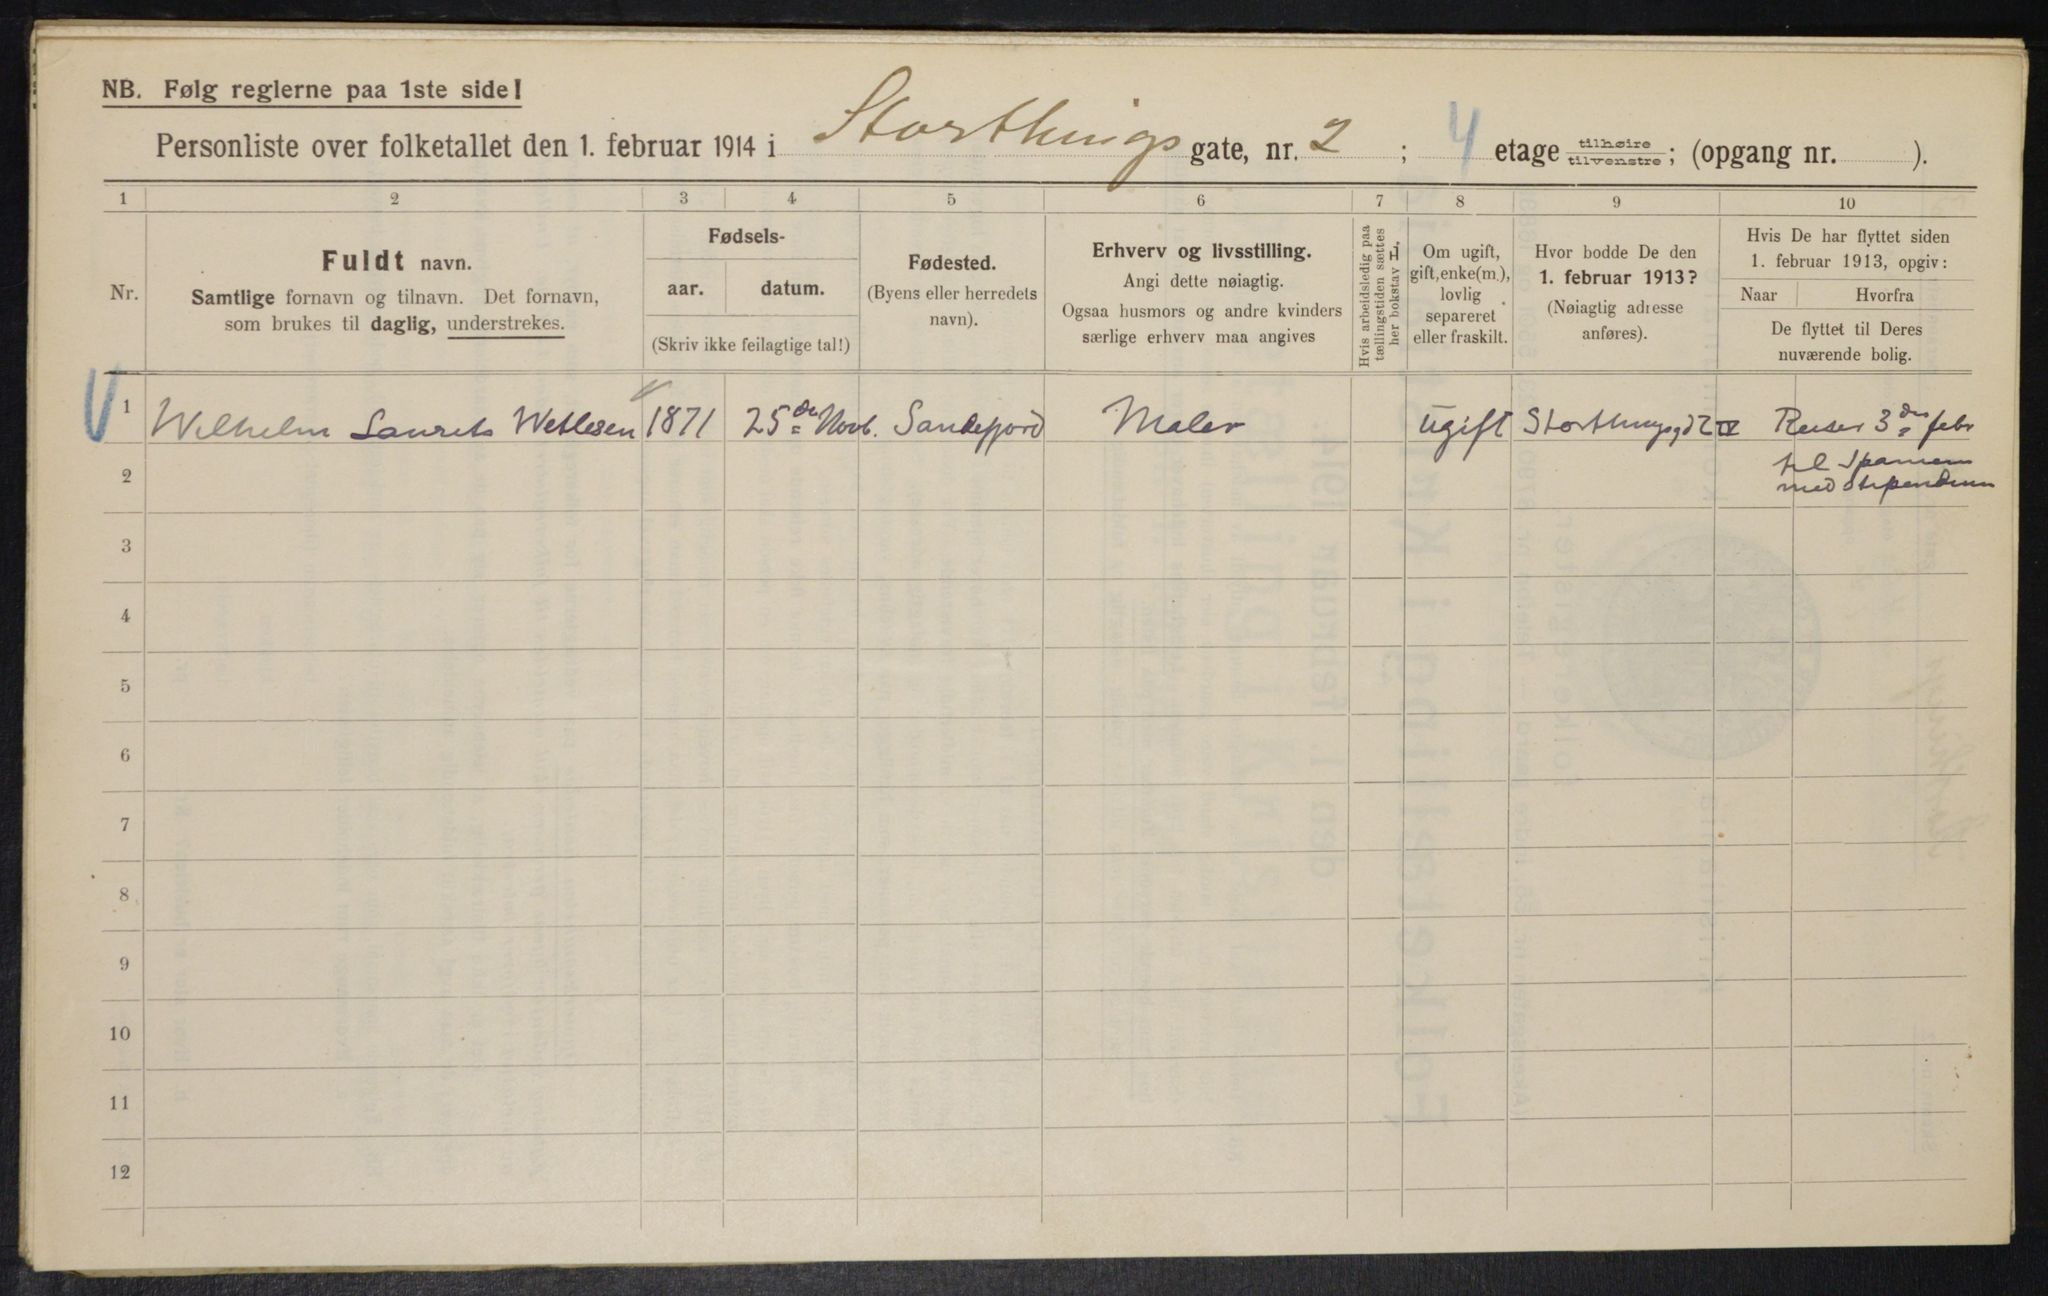 NB. Følg reglerne paa 1ste side!
Personliste over folketallet den 1. februar 1914 i Storthings gate, nr. 2 ; 4 etage tilhøire tilvenstre; (opgang nr. ).
1 2 3 4 5 6 7 8 9 10
Nr.
Fuldt navn.
Samtlige fornavn og tilnavn. Det fornavn,
som brukes til daglig, understrekes.
Fødsels-
aar. datum.
(Skriv ikke feilagtige tal!)
Fødested.
(Byens eller herredets
navn).
Erhverv og livsstilling.
Angi dette nøiagtig.
Ogsaa husmors og andre kvinders
særlige erhverv maa angives
Hvis arbeidsledig paa
tællingstiden sættes
her bokstav L.
Om ugift,
gift, enke(m.),
lovlig
separeret
eller fraskilt.
Hvor bodde De den
1. februar 1913?
(Nøiagtig adresse
anføres).
Hvis De har flyttet siden
1. februar 1913, opgiv:
Naar Hvorfra
De flyttet til Deres
nuværende bolig.
1 Wilhelm Laurits Wetlesen 1871 25de Novb. Sandefjord Maler ugift Storthingsgd 2 IV Reiser 3die febr
2 til Spanien
med Stipendium
3
4
5
6
7
8
9
10
11
12